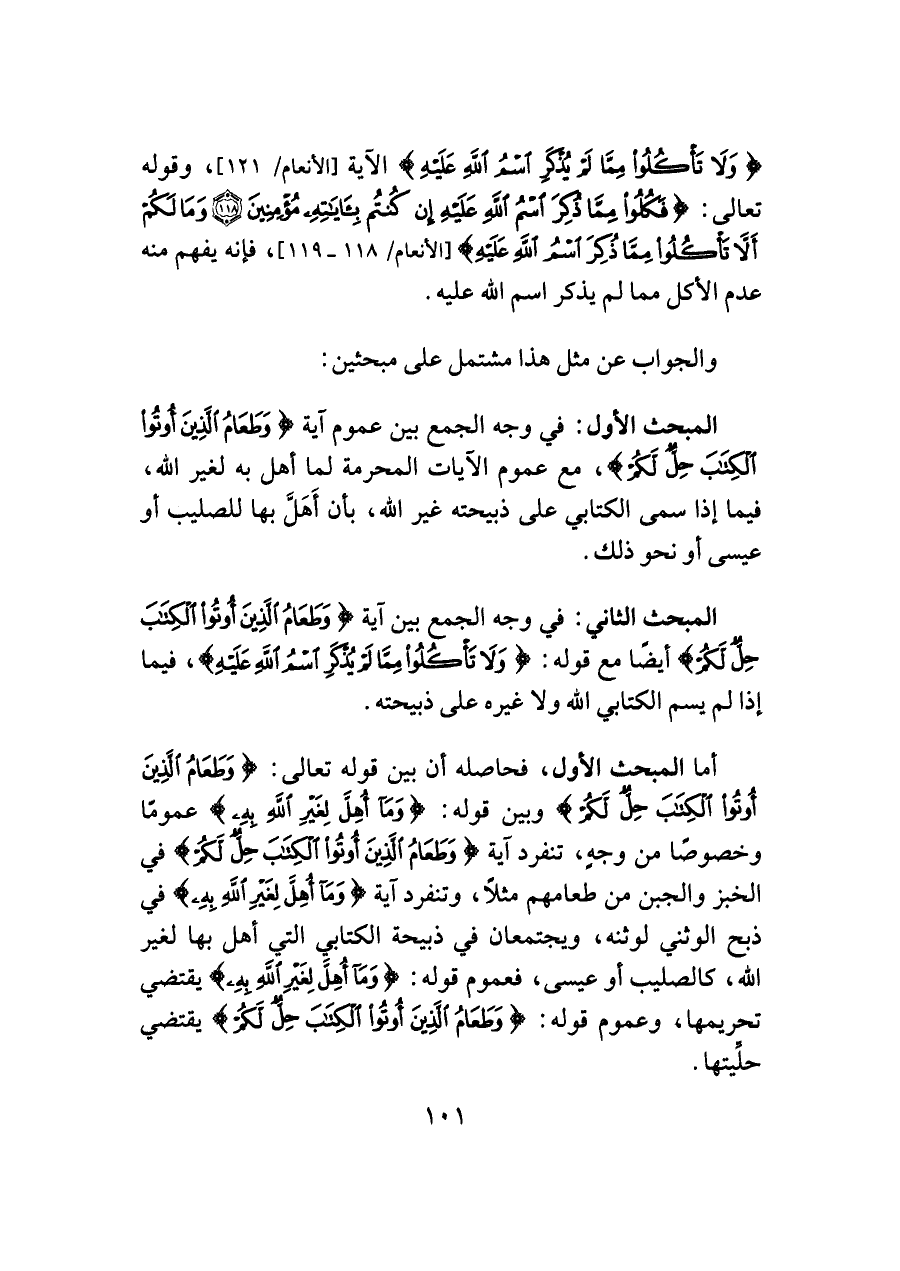 ﴿ وَلَا تَأْكُلُوا۟ مِمَّا لَمْ يُذْكَرِ ٱسْمُ ٱللَّهِ عَلَيْهِ ﴾ الآية [الأنعام/ ١٢١]، وقوله
تعالى: ﴿ فَكُلُوا۟ مِمَّا ذُكِرَ ٱسْمُ ٱللَّهِ عَلَيْهِ إِن كُنتُم بِـَٔايَـٰتِهِۦ مُؤْمِنِينَ ۝١١٨ وَمَا لَكُمْ
أَلَّا تَأْكُلُوا۟ مِمَّا ذُكِرَ ٱسْمُ ٱللَّهِ عَلَيْهِ﴾ [الأنعام/ ١١٨ ـ ١١٩]، فإنه يفهم منه
عدم الأكل مما لم يذكر اسم الله عليه.
والجواب عن مثل هذا مشتمل على مبحثين:
المبحث الأول: في وجه الجمع بين عموم آية ﴿ وَطَعَامُ ٱلَّذِينَ أُوتُوا۟
ٱلْكِتَـٰبَ حِلٌّ لَّكُمْ﴾، مع عموم الآيات المحرمة لما أهل به لغير الله،
فيما إذا سمى الكتابي على ذبيحته غير الله، بأن أَهَلَّ بها للصليب أو
عيسى أو نحو ذلك.
المبحث الثاني: في وجه الجمع بين آية ﴿ وَطَعَامُ ٱلَّذِينَ أُوتُوا۟ ٱلْكِتَـٰبَ
حِلٌّ لَّكُمْ﴾ أيضًا مع قوله: ﴿ وَلَا تَأْكُلُوا۟ مِمَّا لَمْ يُذْكَرِ ٱسْمُ ٱللَّهِ عَلَيْهِ﴾، فيما
إذا لم يسم الكتابي الله ولا غيره على ذبيحته.
أما المبحث الأول، فحاصله أن بين قوله تعالى: ﴿ وَطَعَامُ ٱلَّذِينَ
أُوتُوا۟ ٱلْكِتَـٰبَ حِلٌّ لَّكُمْ ﴾ وبين قوله: ﴿ وَمَآ أُهِلَّ لِغَيْرِ ٱللَّهِ بِهِۦ ﴾ عمومًا
وخصوصًا من وجهٍ، تنفرد آية ﴿ وَطَعَامُ ٱلَّذِينَ أُوتُوا۟ ٱلْكِتَـٰبَ حِلٌّ لَّكُمْ﴾ في
الخبز والجبن من طعامهم مثلاً، وتنفرد آية ﴿ وَمَآ أُهِلَّ لِغَيْرِ ٱللَّهِ بِهِۦ﴾ في
ذبح الوثني لوثنه، ويجتمعان في ذبيحة الكتابي التي أهل بها لغير
الله، كالصليب أو عيسى، فعموم قوله: ﴿ وَمَآ أُهِلَّ لِغَيْرِ ٱللَّهِ بِهِۦ﴾ يقتضي
تحريمها، وعموم قوله: ﴿ وَطَعَامُ ٱلَّذِينَ أُوتُوا۟ ٱلْكِتَـٰبَ حِلٌّ لَّكُمْ ﴾ يقتضي
حلِّيتها.
١٠١